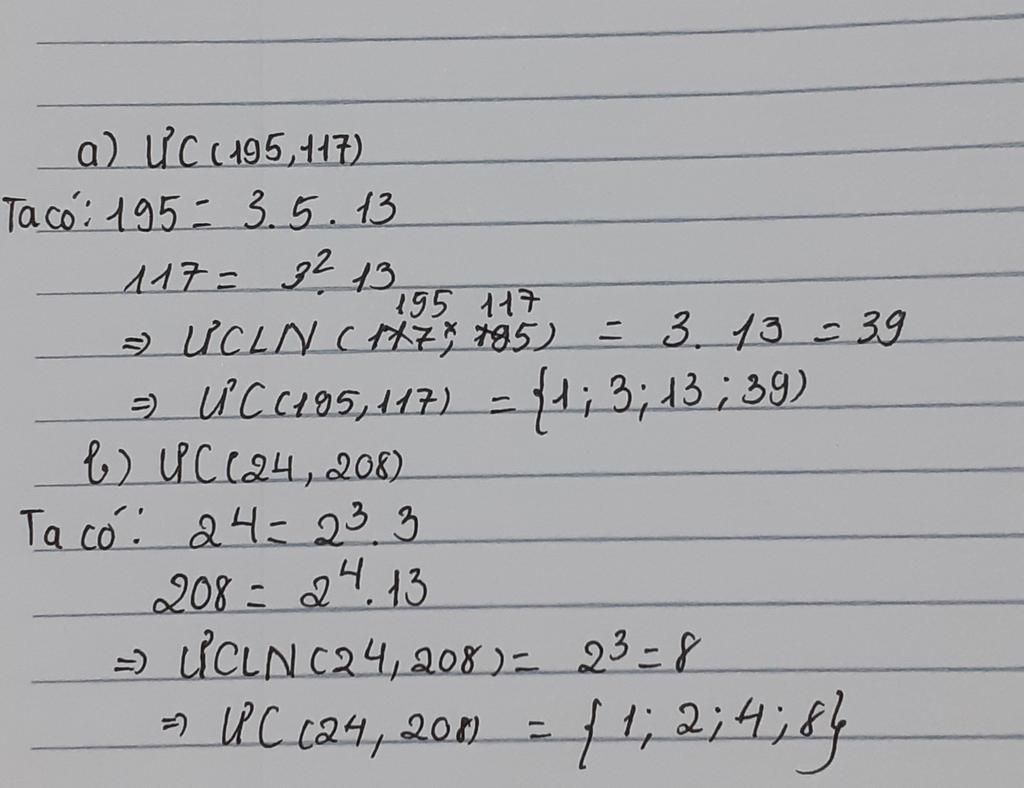 a) ƯC(195,117)
Ta có: 195 = 3.5.13
117 = 3².13
195 117
⇒ ƯCLN (117; 195) = 3.13 = 39
⇒ ƯC(195,117) = {1;3;13;39)
b) ƯC(24,208)
Ta có: 24 = 2³.3
208 = 2⁴.13
⇒ ƯCLN(24,208) = 2³ = 8
⇒ ƯC(24,208) = {1;2;4;8}